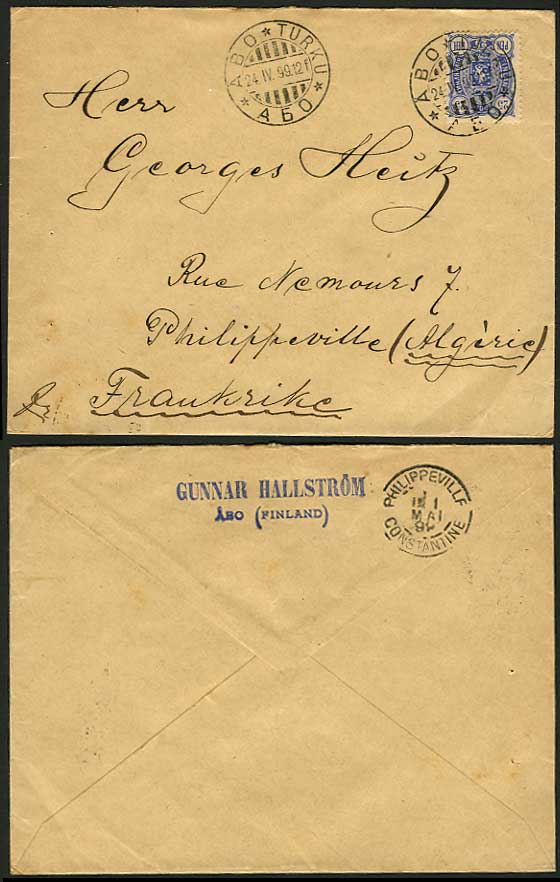 ÅBO * TURKU * АБО *
24.IV.99.12 f
ÅBO
24
Herr
Georges Heitz
Rue Nemours 7.
Philippeville (Algérie)
Frankrike
GUNNAR HALLSTRÖM
ÅBO (FINLAND)
PHILIPPEVILLE
1
MAI
CONSTANTINE